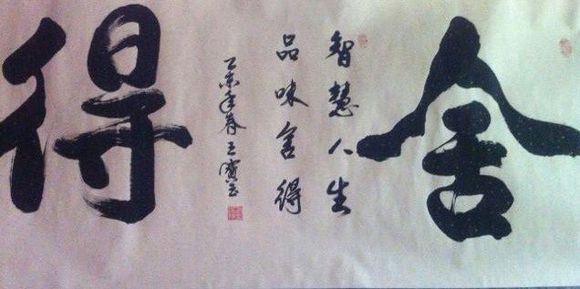 舍得
智慧人生
品味舍得
乙未年春王